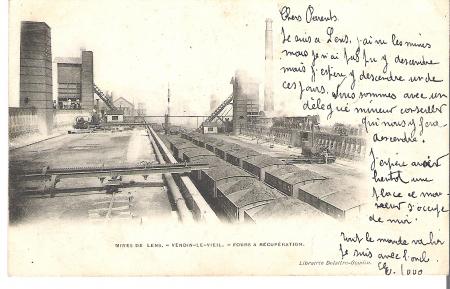 Chers Parents.
Je suis a Lens, j'ai vu les mines
mais je n'ai pas pu y descendre
mais j'espère y descendre un de
ces jours. Nous sommes avec un
délégué mineur conseiller
qui nous y fera
descendre.
J'espère avoir
bientot une
place ce mon-
sieur s'occupe
de moi.
Tout le monde va bien
Je suis avec l'oncle.
MINES DE LENS. - VENDIN-LE-VIEIL. - FOURS A RÉCUPÉRATION.
Librairie Delattre-